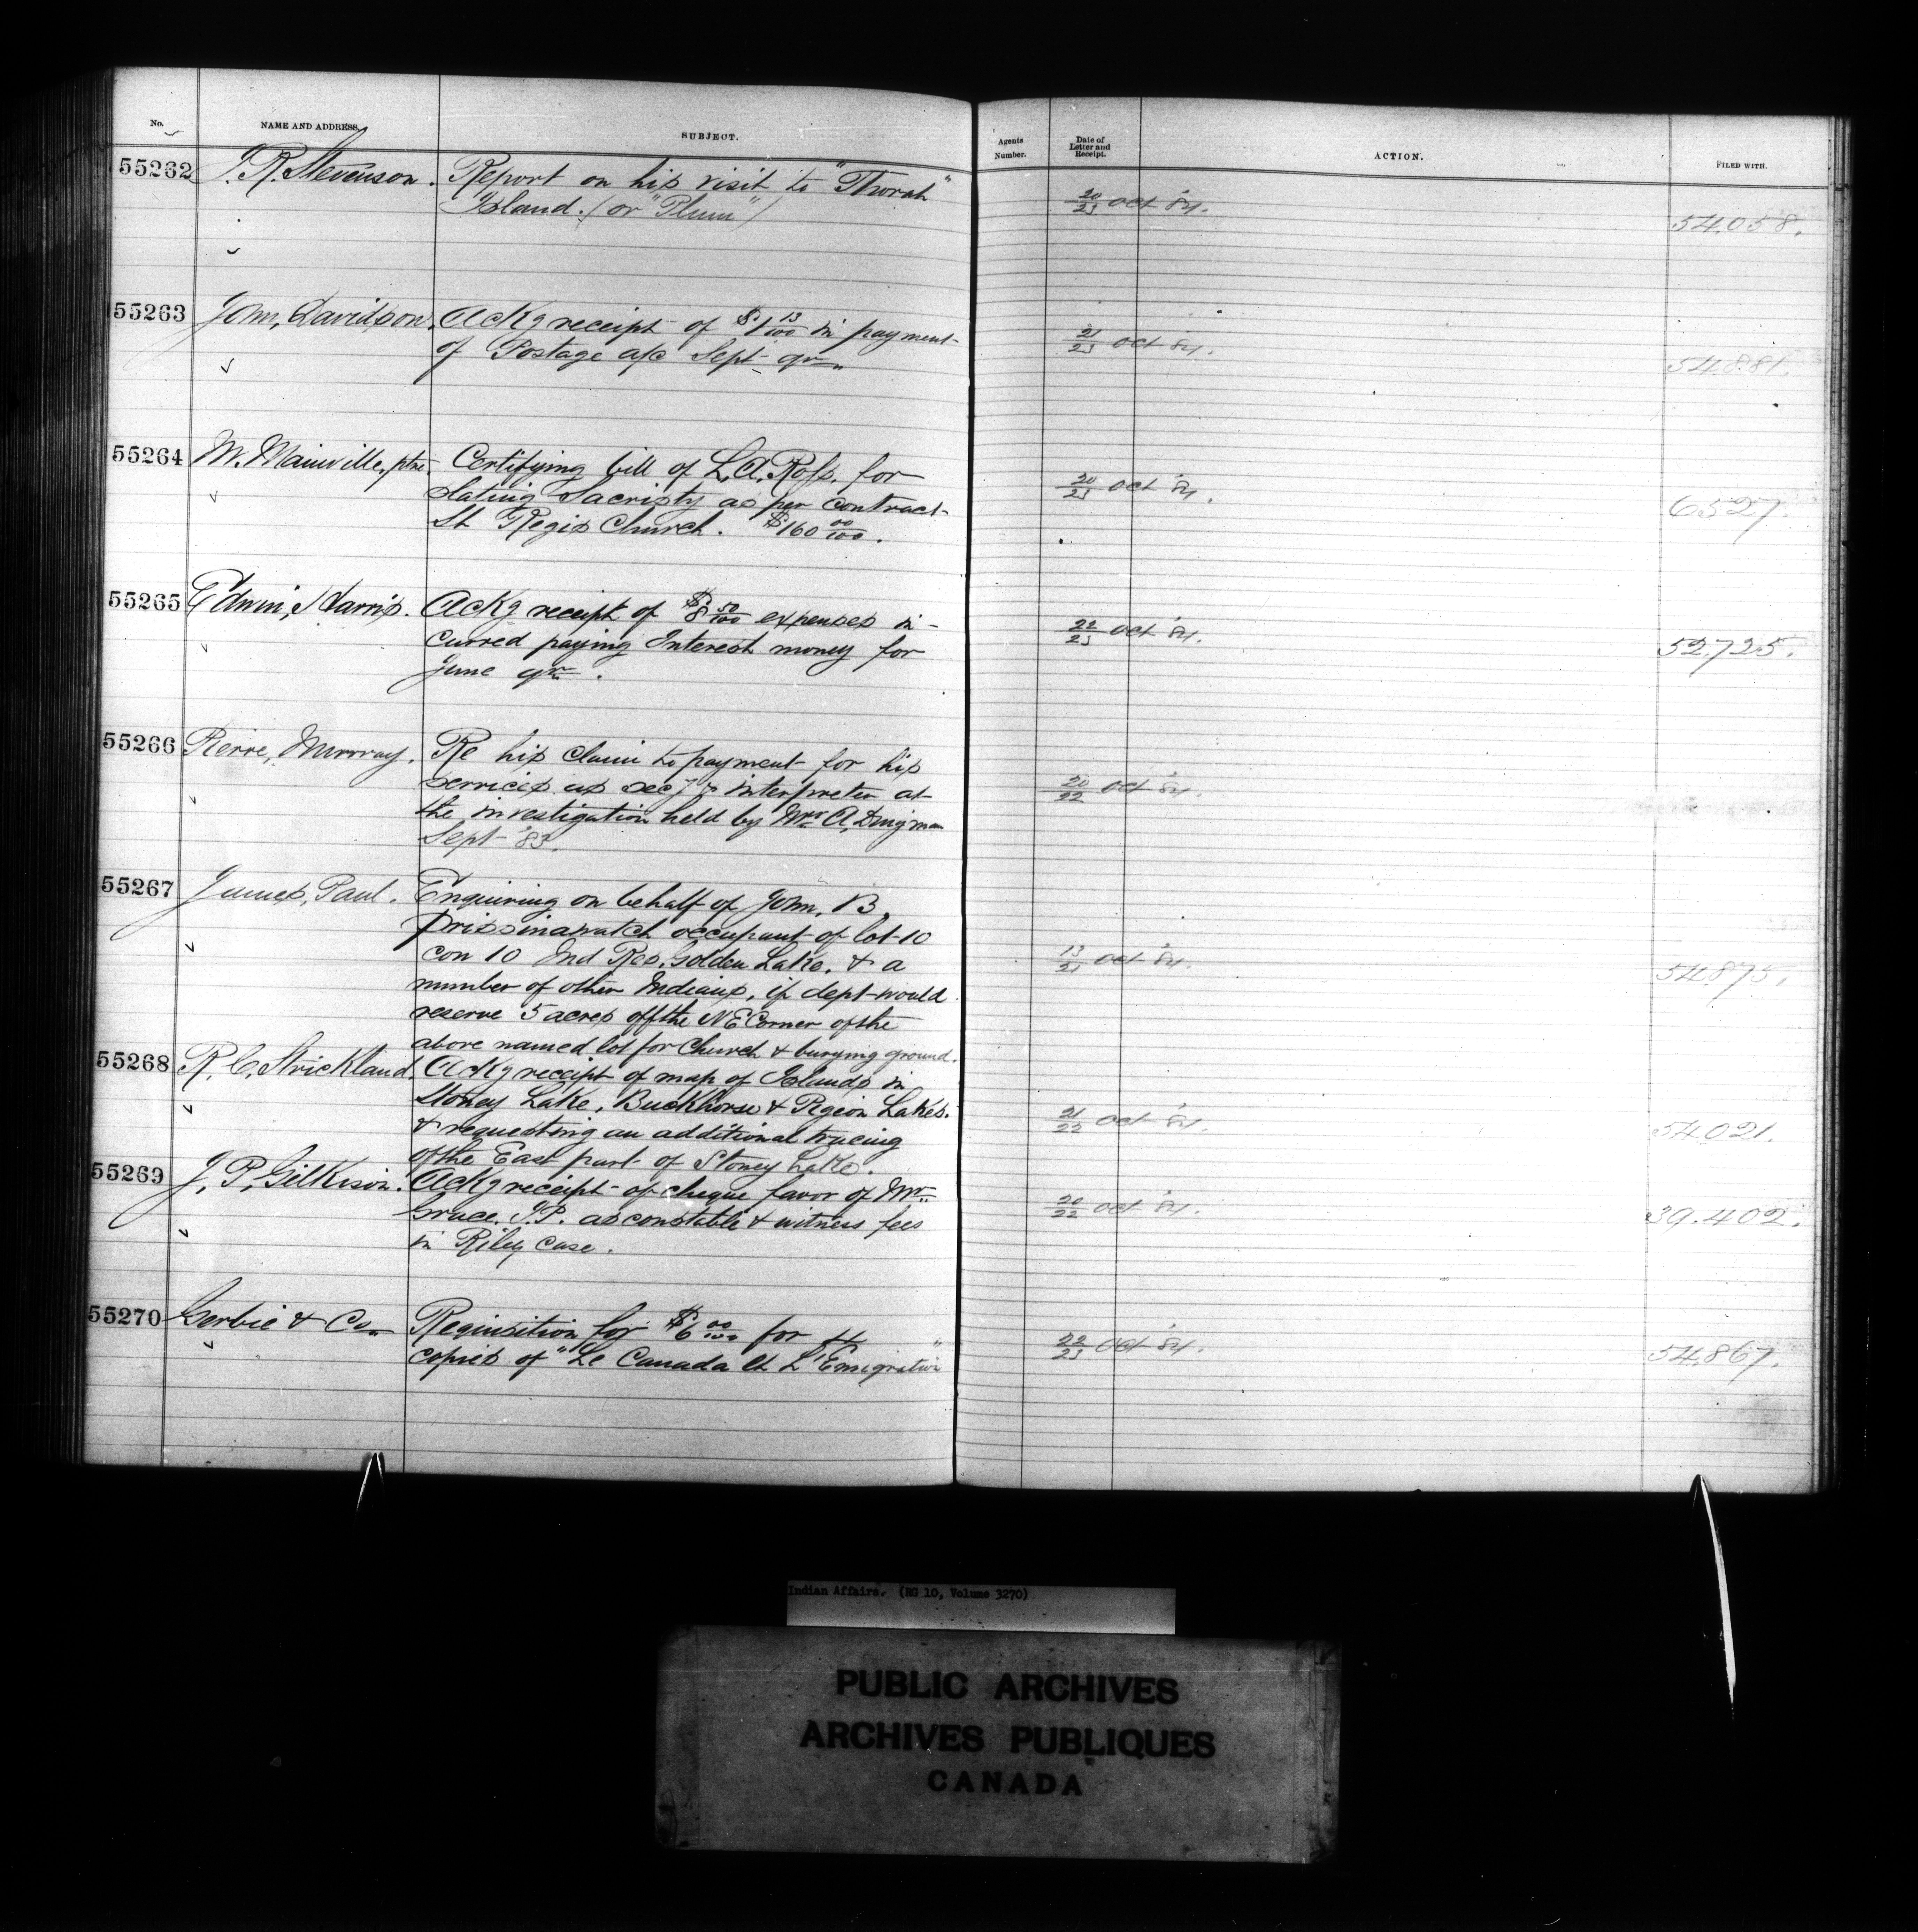 No. NAME AND ADDRESS. SUBJECT. Agents Number. Date of Letter and Receipt. ACTION. FILED WITH.
55262 J. R. Stevenson. Report on his visit to "Thorah"
Island. (or "Plum") 20/23 Oct '84. 54,058.
55263 John, Davidson. Ackg receipt of $1 13/100 in payment
of Postage a/c Sept qr. 21/23 Oct '84. 54,881.
55264 M. Mainville, ptre Certifying bill of L. A. Ross. for
slating Sacristy as per contract
St Regis Church. $160 00/100. 20/23 Oct '84. 6527.
55265 Edwin, Harris. Ackg receipt of $8 50/100 expenses in-
curred paying Interest money for
June qr. 22/23 Oct '84. 52,725.
55266 Pierre, Murrray. Re his claim to payment for his
services as secy & interpreter at
the investigation held by Mr A, Dingman
Sept '83. 20/22 Oct '84.
55267 James, Paul. Enquiring on behalf of John, B,
Prissinawatch occupant of lot 10
con 10 Ind Res. Golden Lake. & a
number of other Indians, if dept would
reserve 5 acres off the N E Corner of the
above named lot for Church & burying ground. 13/21 Oct '84. 54,875,
55268 R, C, Strickland, Ackg receipt of map of Islands in
Stoney Lake, Buckhorse & Pigeon Lakes.
& requesting an additional tracing
of the East part of Stoney Lake. 21/22 Oct '84. 54,021.
55269 J, P, Gilkison. Ackg receipt of cheque favor of Mr
Grace. J.P. as constable & witness fees
in Riley case. 20/22 Oct '84. 39.402.
55270 Gerbié & Co Requisition for $6 00/100 for 4
copies of "Le Canada et L'Emigration" 22/23 Oct '84. 54,867.
Indian Affairs. (RG 10, Volume 3270)
PUBLIC ARCHIVES
ARCHIVES PUBLIQUES
CANADA